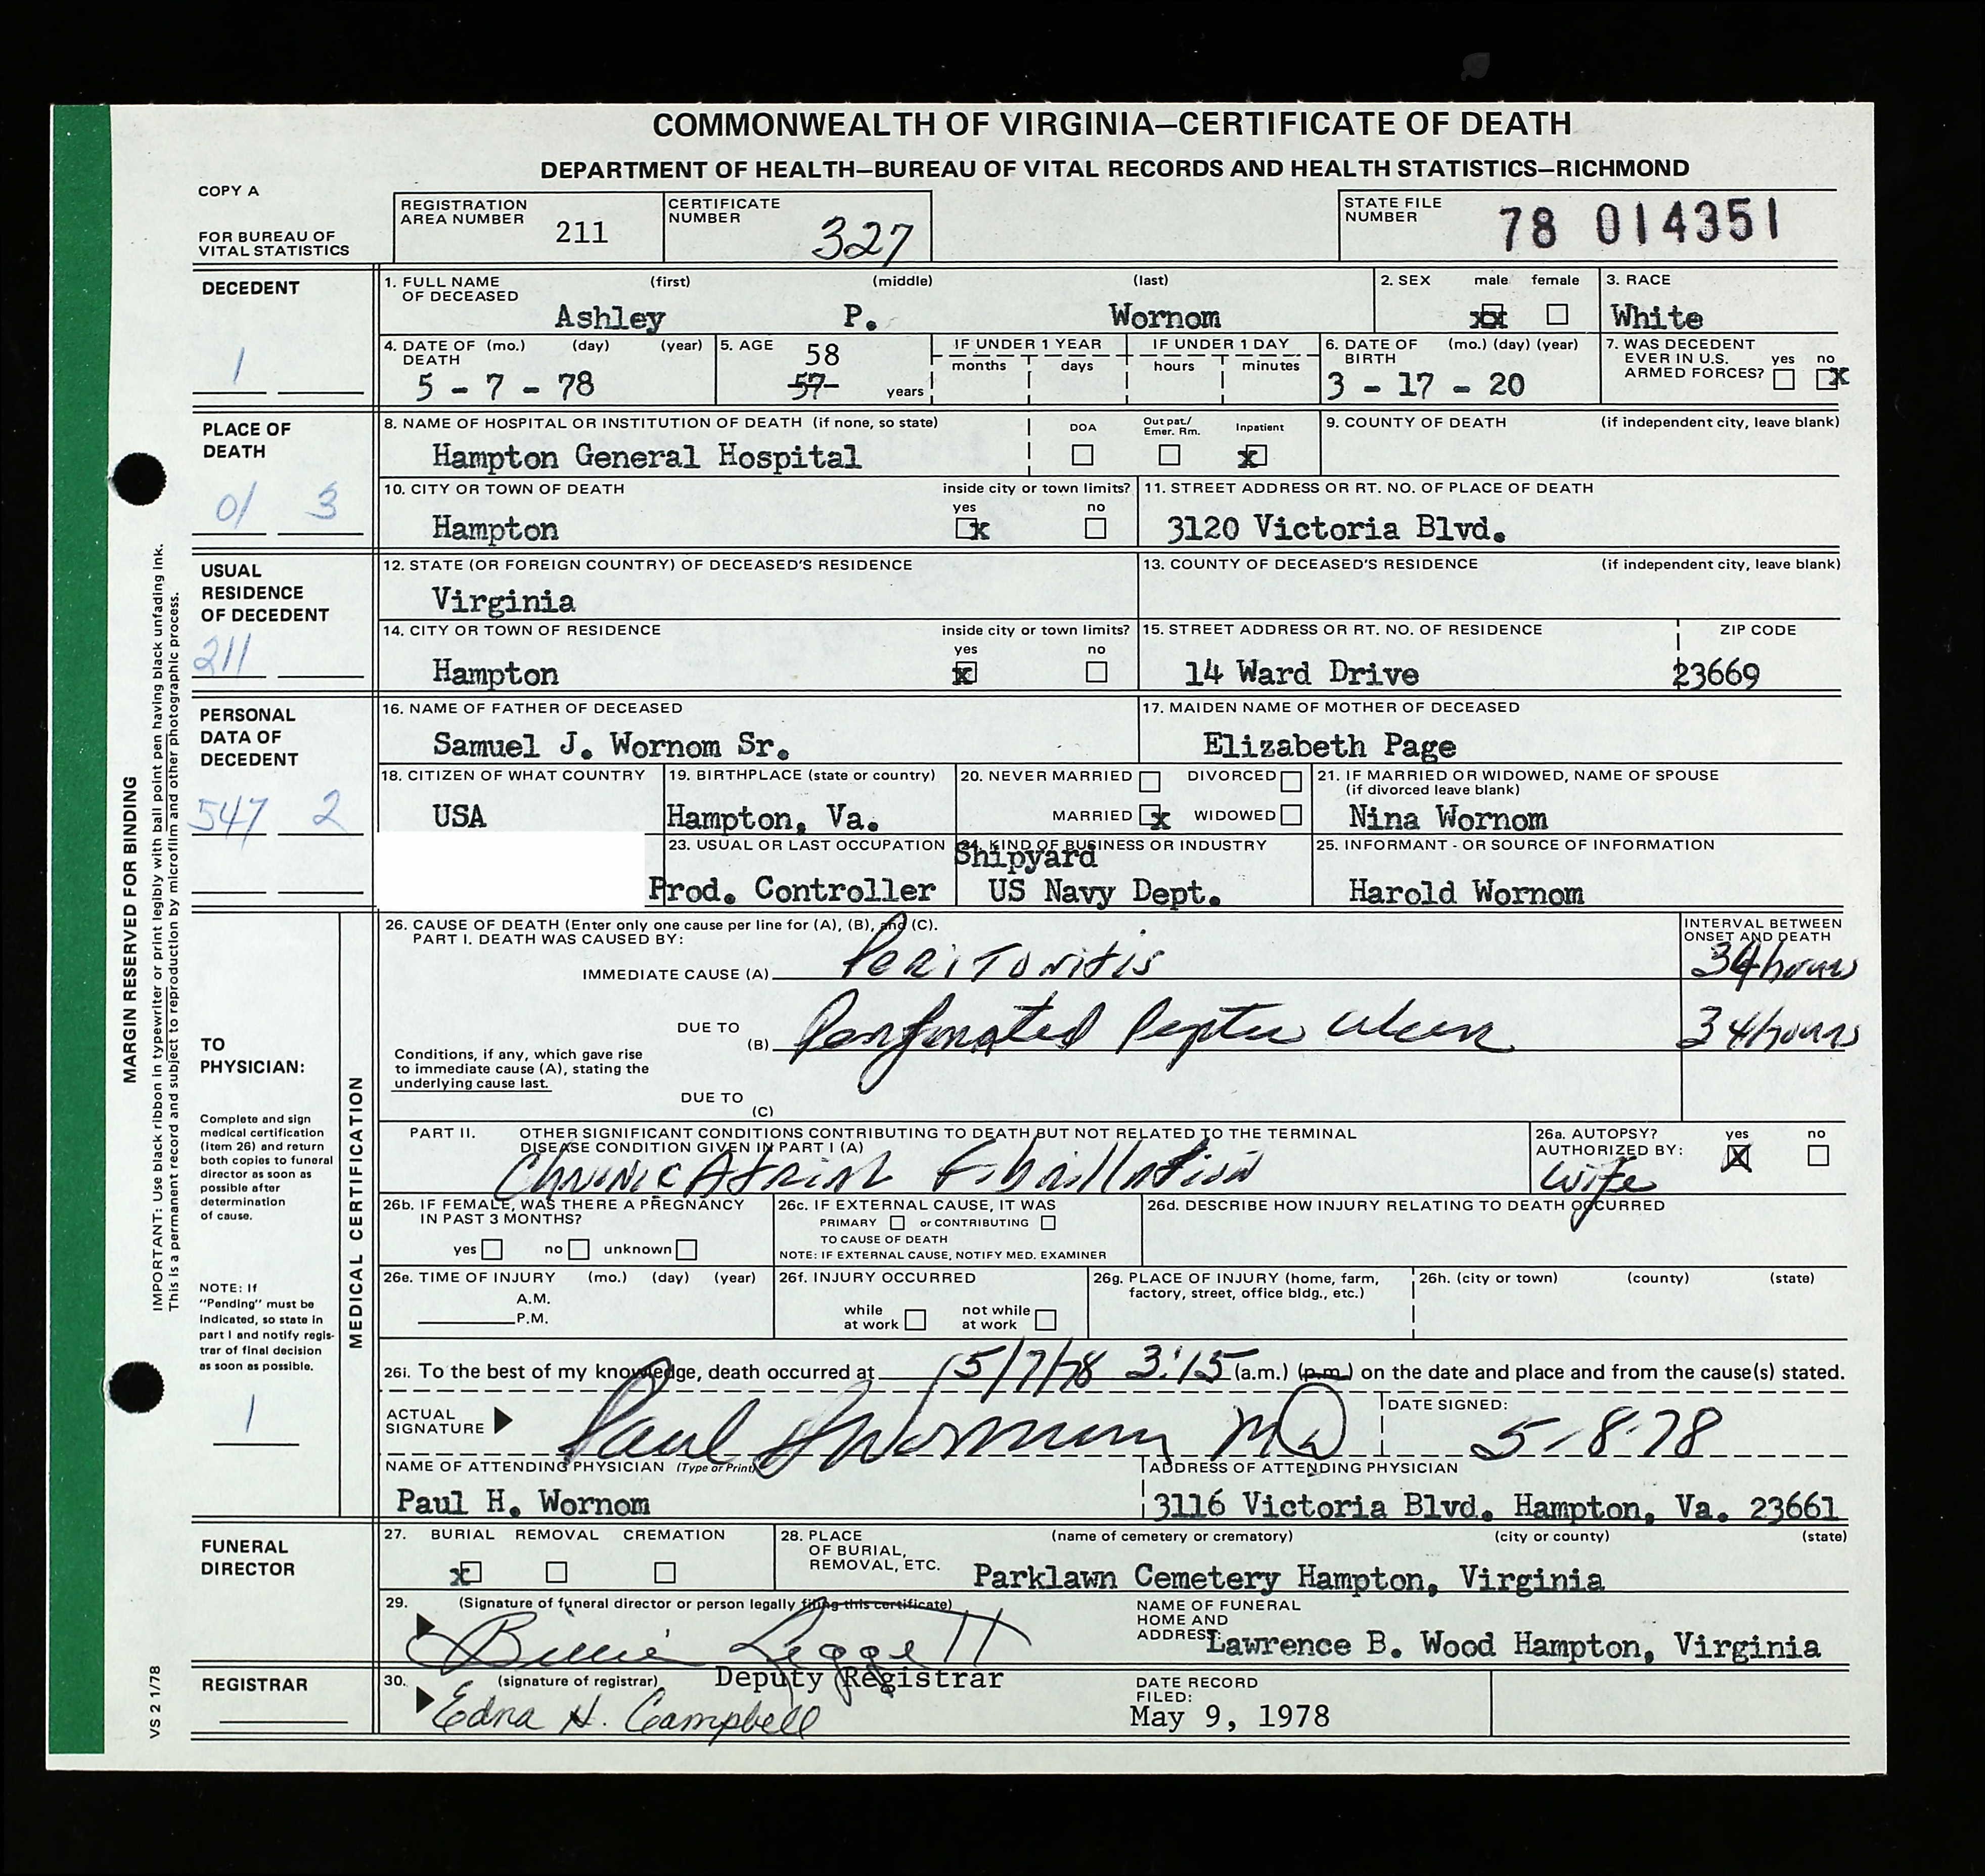 COMMONWEALTH OF VIRGINIA—CERTIFICATE OF DEATH
DEPARTMENT OF HEALTH—BUREAU OF VITAL RECORDS AND HEALTH STATISTICS—RICHMOND
COPY A
FOR BUREAU OF
VITAL STATISTICS
REGISTRATION
AREA NUMBER 211
CERTIFICATE
NUMBER 327
STATE FILE
NUMBER 78 014351
DECEDENT
1
1. FULL NAME (first) (middle) (last)
OF DECEASED
Ashley P. Wornom
2. SEX male female
xx
3. RACE
White
4. DATE OF (mo.) (day) (year)
DEATH
5 - 7 - 78
5. AGE 58
57 years
IF UNDER 1 YEAR
months days
IF UNDER 1 DAY
hours minutes
6. DATE OF (mo.) (day) (year)
BIRTH
3 - 17 - 20
7. WAS DECEDENT
EVER IN U.S. yes no
ARMED FORCES? x
PLACE OF
DEATH
01 3
8. NAME OF HOSPITAL OR INSTITUTION OF DEATH (if none, so state)
Hampton General Hospital
DOA Out pat./ Inpatient
Emer. Rm.
x
9. COUNTY OF DEATH (if independent city, leave blank)
10. CITY OR TOWN OF DEATH inside city or town limits?
yes no
Hampton x
11. STREET ADDRESS OR RT. NO. OF PLACE OF DEATH
3120 Victoria Blvd.
USUAL
RESIDENCE
OF DECEDENT
211
12. STATE (OR FOREIGN COUNTRY) OF DECEASED'S RESIDENCE
Virginia
13. COUNTY OF DECEASED'S RESIDENCE (if independent city, leave blank)
14. CITY OR TOWN OF RESIDENCE inside city or town limits?
yes no
Hampton x
15. STREET ADDRESS OR RT. NO. OF RESIDENCE ZIP CODE
14 Ward Drive 23669
PERSONAL
DATA OF
DECEDENT
547 2
16. NAME OF FATHER OF DECEASED
Samuel J. Wornom Sr.
17. MAIDEN NAME OF MOTHER OF DECEASED
Elizabeth Page
18. CITIZEN OF WHAT COUNTRY
USA
19. BIRTHPLACE (state or country)
Hampton, Va.
20. NEVER MARRIED DIVORCED
MARRIED x WIDOWED
21. IF MARRIED OR WIDOWED, NAME OF SPOUSE
(if divorced leave blank)
Nina Wornom
23. USUAL OR LAST OCCUPATION
Prod. Controller
24. KIND OF BUSINESS OR INDUSTRY
Shipyard
US Navy Dept.
25. INFORMANT - OR SOURCE OF INFORMATION
Harold Wornom
MARGIN RESERVED FOR BINDING
IMPORTANT: Use black ribbon in typewriter or print legibly with ball point pen having black unfading ink.
This is a permanent record and subject to reproduction by microfilm and other photographic process.
TO
PHYSICIAN:
Complete and sign
medical certification
(item 26) and return
both copies to funeral
director as soon as
possible after
determination
of cause.
NOTE: If
"Pending" must be
indicated, so state in
part I and notify regis-
trar of final decision
as soon as possible.
1
MEDICAL CERTIFICATION
26. CAUSE OF DEATH (Enter only one cause per line for (A), (B), and (C).
PART I. DEATH WAS CAUSED BY:
INTERVAL BETWEEN
ONSET AND DEATH
IMMEDIATE CAUSE (A) Peritonitis 34 hours
DUE TO
(B) Perforated Peptic Ulcer 34 hours
Conditions, if any, which gave rise
to immediate cause (A), stating the
underlying cause last.
DUE TO
(C)
PART II. OTHER SIGNIFICANT CONDITIONS CONTRIBUTING TO DEATH BUT NOT RELATED TO THE TERMINAL
DISEASE CONDITION GIVEN IN PART I (A)
Chronic Atrial Fibrillation
26a. AUTOPSY? yes no
AUTHORIZED BY: X
Wife
26b. IF FEMALE, WAS THERE A PREGNANCY
IN PAST 3 MONTHS?
yes no unknown
26c. IF EXTERNAL CAUSE, IT WAS
PRIMARY or CONTRIBUTING
TO CAUSE OF DEATH
NOTE: IF EXTERNAL CAUSE, NOTIFY MED. EXAMINER
26d. DESCRIBE HOW INJURY RELATING TO DEATH OCCURRED
26e. TIME OF INJURY (mo.) (day) (year)
A.M.
P.M.
26f. INJURY OCCURRED
while not while
at work at work
26g. PLACE OF INJURY (home, farm,
factory, street, office bldg., etc.)
26h. (city or town) (county) (state)
26i. To the best of my knowledge, death occurred at 5/7/78 3:15 (a.m.) (p.m.) on the date and place and from the cause(s) stated.
ACTUAL
SIGNATURE Paul H Wornom MD
DATE SIGNED:
5-8-78
NAME OF ATTENDING PHYSICIAN (Type or Print)
Paul H. Wornom
ADDRESS OF ATTENDING PHYSICIAN
3116 Victoria Blvd. Hampton, Va. 23661
FUNERAL
DIRECTOR
27. BURIAL REMOVAL CREMATION
x
28. PLACE (name of cemetery or crematory) (city or county) (state)
OF BURIAL,
REMOVAL, ETC.
Parklawn Cemetery Hampton, Virginia
29. (Signature of funeral director or person legally filing this certificate)
Billie Leggett
NAME OF FUNERAL
HOME AND
ADDRESS: Lawrence B. Wood Hampton, Virginia
REGISTRAR
30. (signature of registrar) Deputy Registrar
Edna H. Campbell
DATE RECORD
FILED:
May 9, 1978
VS 2 1/78